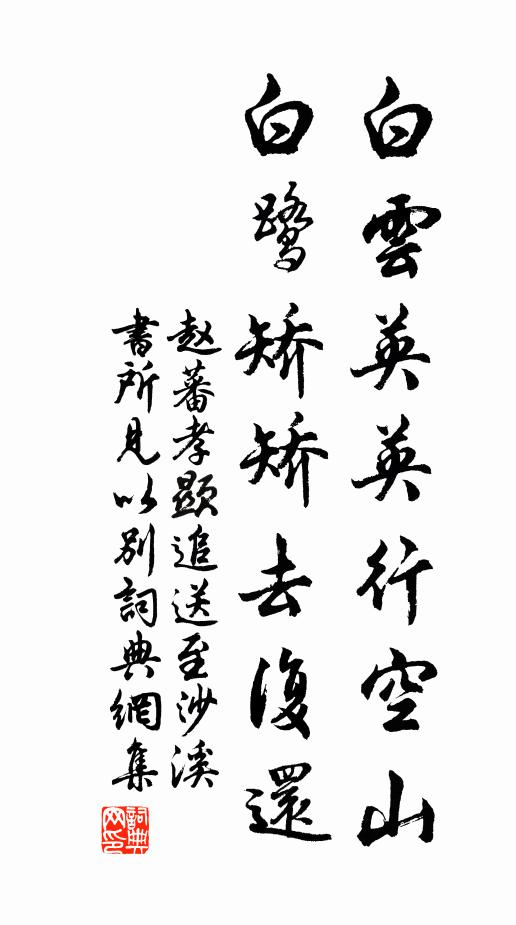 白雲英英行空山
白鹭矯矯去復還
赵蕃孝顯追送至沙溪
書所見以别詞典網集
詞典网印